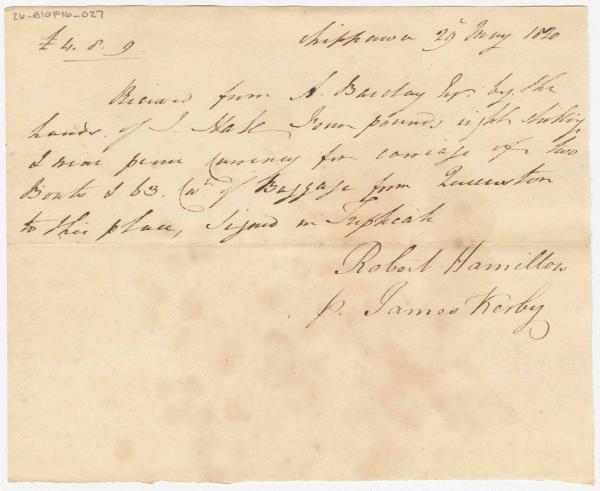 26-B10F16-027
£4. 8. 9
Chippawa 29 May 1820
Received from A. Barclay Esqr. by the
hands of J. Hale Four pounds eight shillings
& nine pence Currency for carriage of two
Boats & 63. Cwt of Baggage from Queenston
to this place, Signed in Triplicate
Robert Hamilton
p. James Kerby